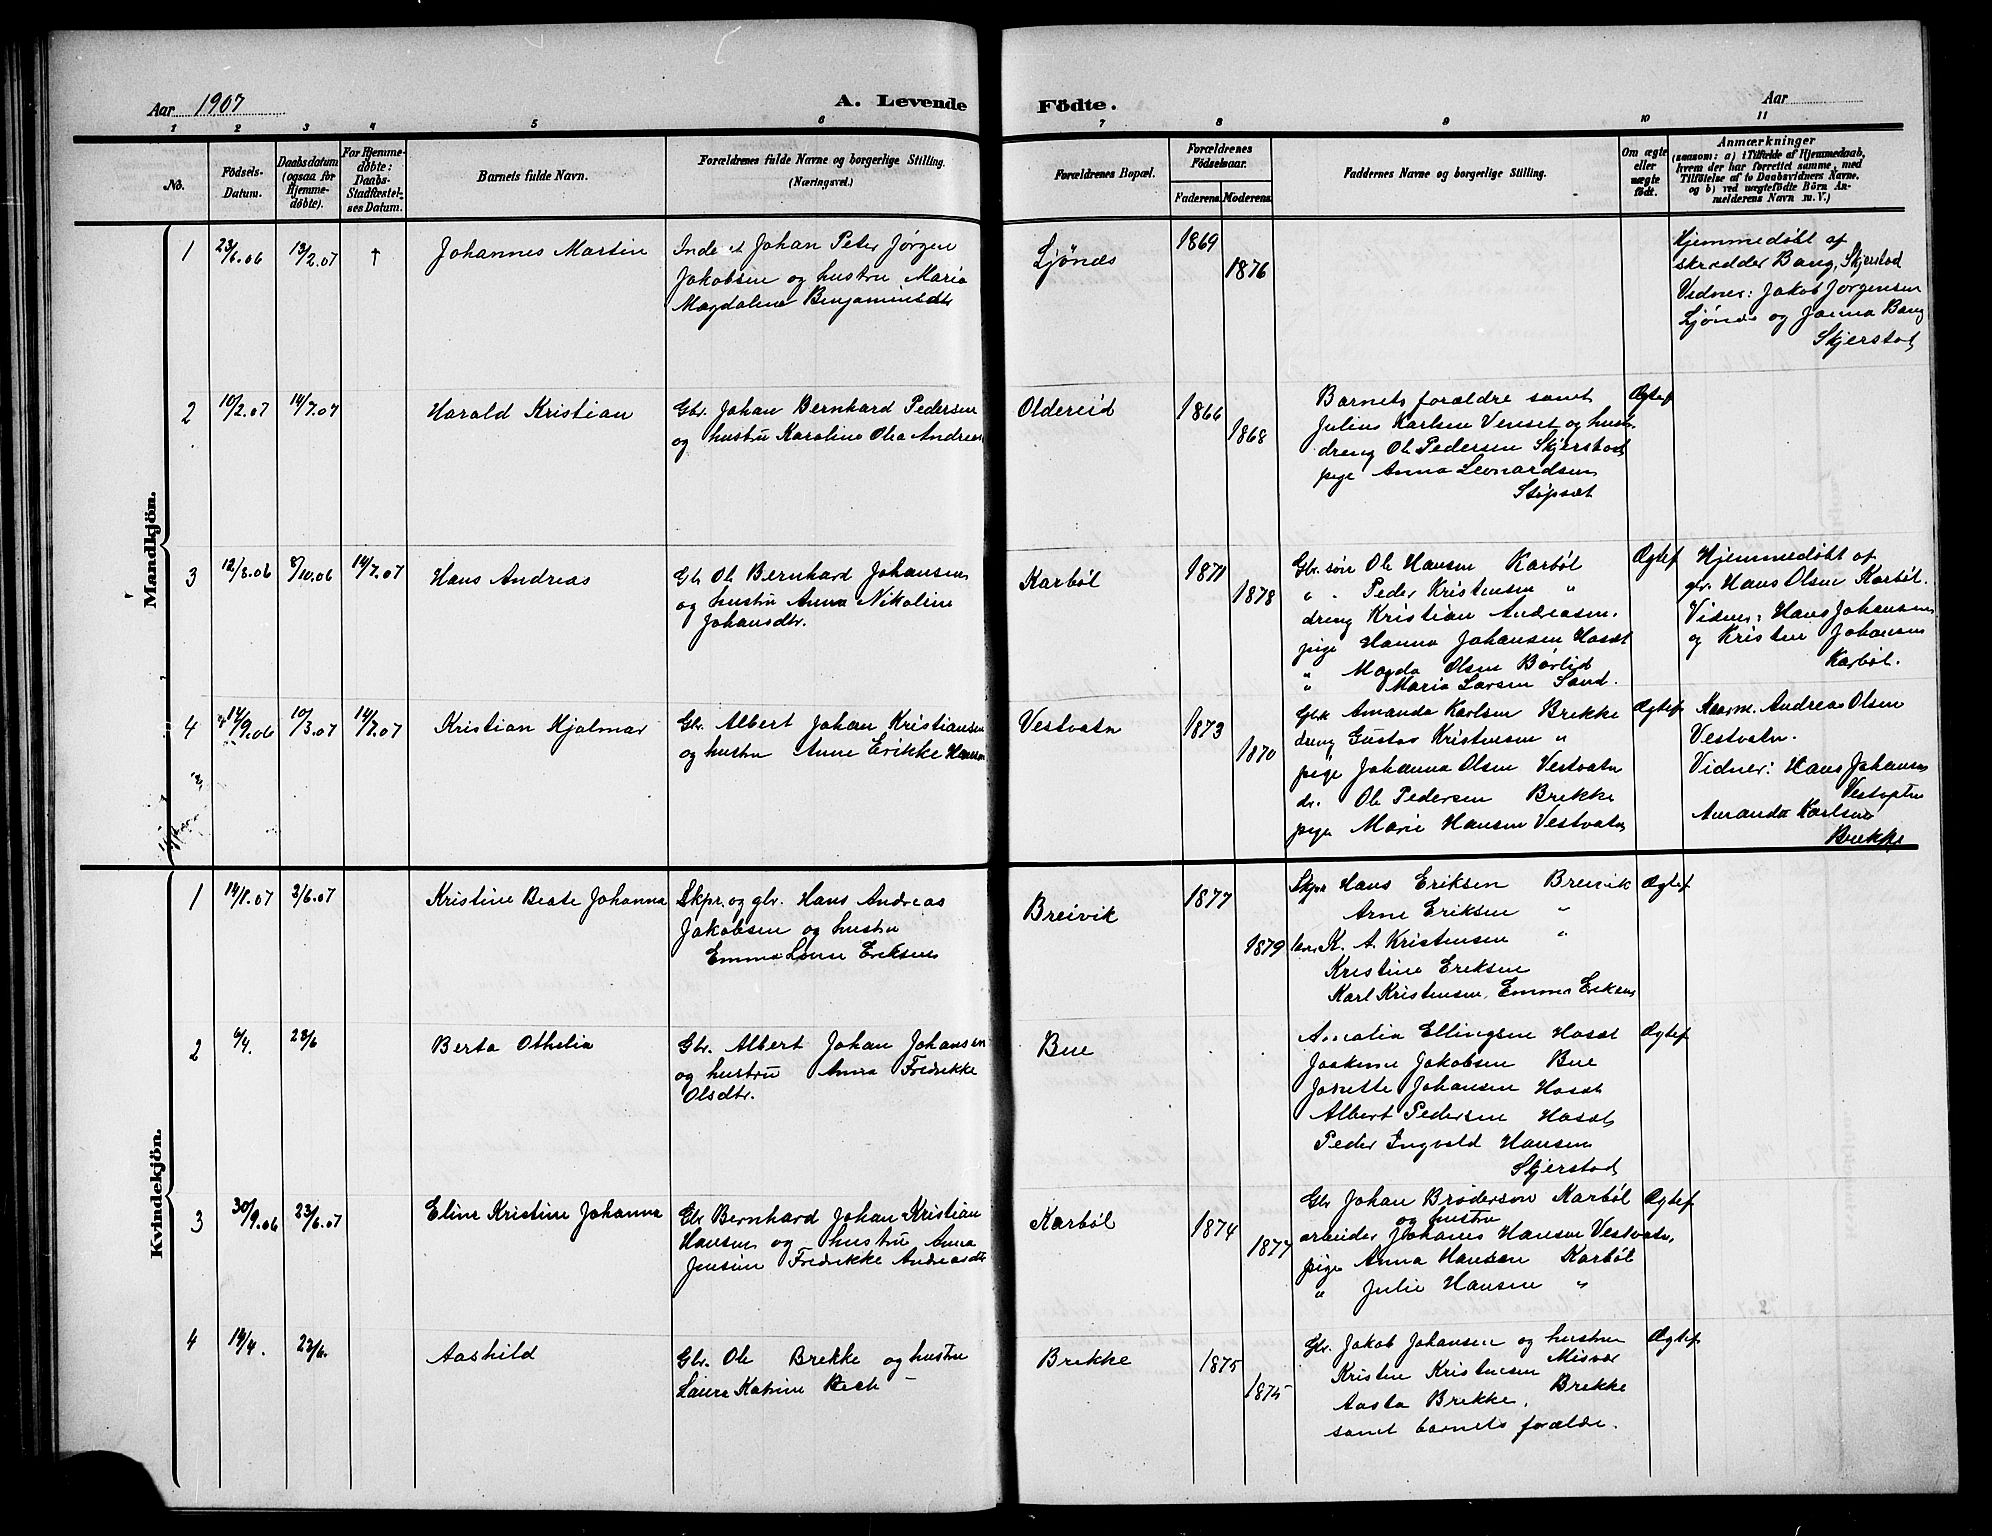 Aar 1907
A. Levende
Födte.
Aar
1 2 3 4 5 6 7 8 9 10 11
No.
Födsels-
Datum.
Daabsdatum
(ogsaa for
Hjemme-
döbte).
For Hjemme-
döbte:
Daabs-
Stadfæstel-
ses Datum.
Barnets fulde Navn.
Forældrenes fulde Navne og borgerlige Stilling.
(Næringsvei.)
Forældrenes Bopæl.
Forældrenes
Födselsaar.
Faderens Moderens
Faddernes Navne og borgerlige Stilling.
Om ægte
eller
uægte
födt.
Anmærkninger
(saasom: a) i Tilfælde af Hjemmedaab,
hvem der har forrettet samme, med
Tilföielse af to Daabsvidners Navne,
og b) ved uægtefödte Börn An-
melderens Navn m. V.)
Mandkjön.
1
23/6.06
13/2.07
†
Johannes Martin
Inde st Johan Peter Jørgen
Jakobsen og hustru Maria
Magdalena Benjaminsdtr
Ljönes
1869
1876
Hjemmedøbt af
skrædder Bang, Skjerstad
Vidner: Jakob Jørgensen
Ljönes og Janna Bang
Skjerstad
2
10/2.07
14/7.07
Harald Kristian
Gbr. Johan Bernhard Pedersen
og hustru Karoline Olea Andreas
Oldereid
1866
1868
Barnets forældre samt
Julius Karlsen Venset og hustr.
dreng Ole Pedersen Skjerstad
pige Anna Leonardsen
Støpsæt
Ægtef
3
12/8.06
8/10.06
14/7.07
Hans Andreas
Gbr Ole Bernhard Johansen
og hustru Anna Nikoline
Johansdtr.
Karböl
1871
1878
Gbr. søn Ole Hansen Karböl
" . Peder Kristensen "
dreng Kristian Andreasen.
pige Hanna Johansen Hosæt
" Magda Olsen Börlid
" Maria Larsen Sand.
Ægtef
Hjemmedøbt af
gbr. Hans Olsen Karböl.
Vidner: Hans Johansen
og Kristen Johansen
Karböl.
4
14/9.06
10/3.07
14/7.07
Kristian Hjalmar
Gbr. Albert Johan Kristiansen
og hustru Anne Erikke Hansen
Vestvatn
1873
1870
Gbk Amanda Karlsen Brekke
dreng Gustav Kristensen "
pige Johanna Olsen Vestvatn
dr. Ole Pedersen Brekke
pige Marie Hansen Vestvatn
Ægtef
Andreas Olsen
Vestvatn.
Vidner: Hans Johansen
Vestvatn
Amanda Karlsen
Brekke
Kvindekjön.
1
14/1.07
2/6.07
Kristine Beate Johanna
Skpr. og gbr. Hans Andreas
Jakobsen og hustru
Emma Lovise Eriksen
Breivik
1877
1879
Skpr Hans Eriksen Breivik
Arne Eriksen "
K. A. Kristensen "
Kristine Eriksen
Karl Kristensen. Emma Eriksen
Ægtef
2
6/4.
23/6
Berta Othelia
Gbr. Albert Johan Johansen
og hustru Anna Fredrikke
Olsdtr.
Bue
Amalia Ellingsen Hosæt
Jaskime Jakobsen Bue
Janette Johansen Hosæt
Albert Pedersen Hosæt
Peder Ingvald Hansen
Skjerstad
Ægtef
3
30/9.06
23/6.07
Eline Kristine Johanna
Gbr Bernhard Johan Kristian
Hansen og hustru Anna
Jensine Fredrikke Andreasdtr
Karböl
1874
1877
Gbr Johan Brodersen Karböl
og hustru
arbeider Johanes Hansen Vestvatn,
pige Anna Hansen Karböl
" Julie Hansen "
Ægtef
4
14/4.
23/6.
Aashild
Gbr. Ole Brekke og hustru
Laura Katrine Bech
Brekke
1875
1875
Gbr. Jakob Johansen og hustru
Kristine Kristensen Misvær
Aasta Brekke, Brekke
samt barnets forældre.
Ægtef